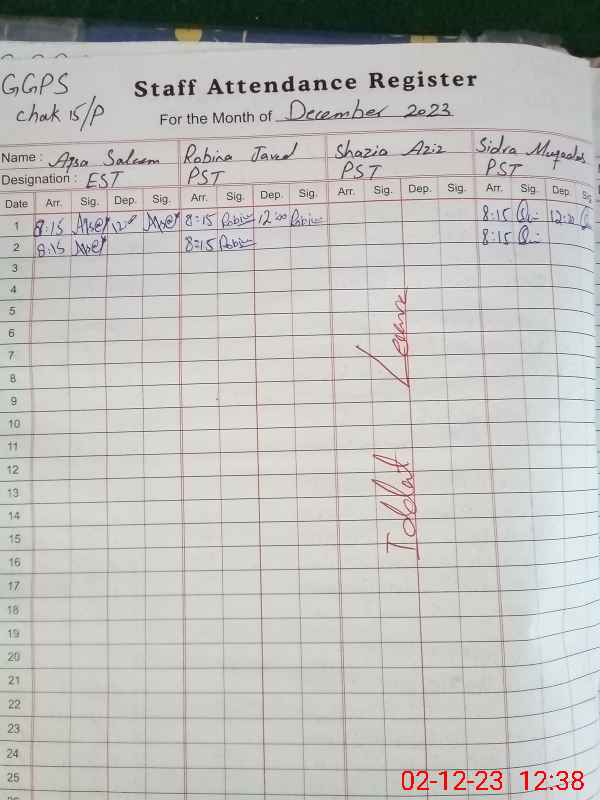 GGPS
chak 15/P
Staff Attendance Register
For the Month of December 2023
Name : Aqsa Saleem Robina Javed Shazia Aziz Sidra
Designation : EST PST PST PST
Date Arr. Sig. Dep. Sig. Arr. Sig. Dep. Sig. Arr. Sig. Dep. Sig. Arr. Sig. Dep. Sig
1 8:15 Aqsa 12:00 Aqsa 8:15 Robina 12:00 Robina 8:15 12:00
2 8:15 Aqsa 8:15 Robina 8:15
3
4
5
6
7
8
9
10
11
12
13
14
15
16
17
18
19
20
21
22
23
24
25
Iddat Leave
02-12-23 12:38